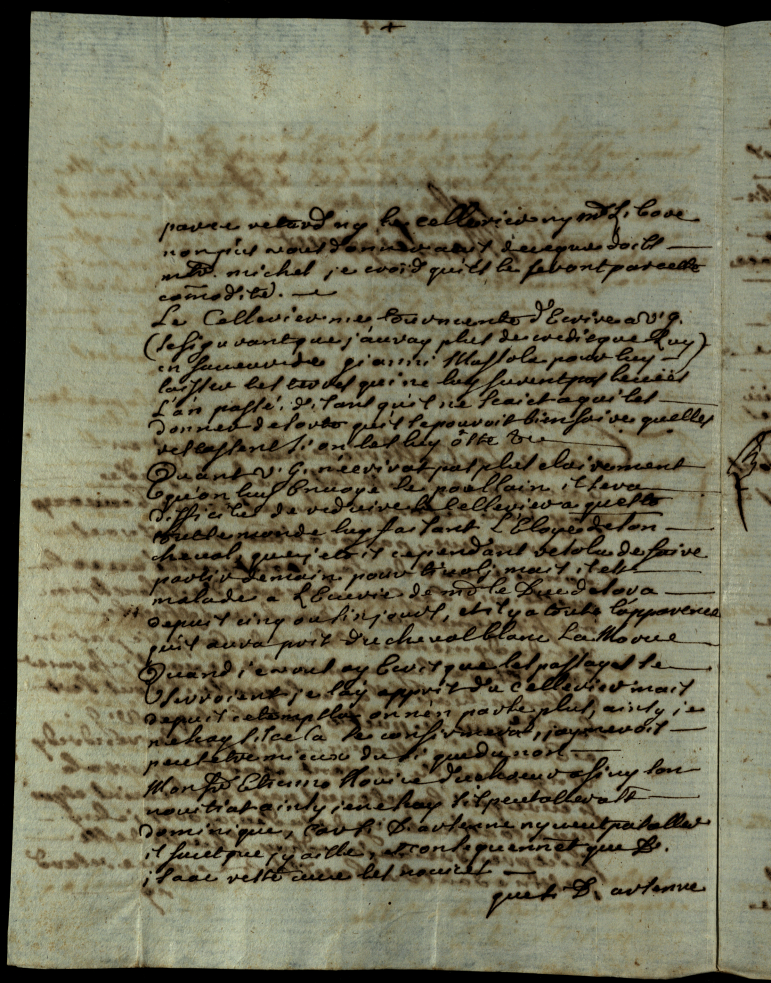 par ce retard ny le cellerier ny md Libore
non plus vous donner avis de ce que doibt
md. michel je croid qu'ils le feront par cette
comodité.
Le Cellerier me tourmente d'Ecrire a v. g.
(se figurant que j'auray plus de credit que Luy)
en faveur de gianni Massole pour luy
laisser les terres qui ne luy furent pas laissées
L'an passé, disant qu'il ne scait a qui les
donner de sorte qu'il se pouroit bien faire quelles
restassent si on les luy ôste &c
Quant v. g. n'ecrirat pas plus clairement
qu'on luy Envoye le poullain il sera
difficiles de reduire le Cellerier a quetto
tout le monde luy faisant L'Eloge de son
cheval, que j'etois cependant resolu de faire
partir demain pour tivoli mais il est
malade a L'Ecurie de md le Duc de sora
depuis cinq ou six jours, et il y a toute l'apparence
qu'il aura pris du cheval blanc La Morve
Quand je vous ay Ecrit que les passages se
serroient je l'ay appris du Cellerier mais
depuis ce temps là on n'en parle plus, ainsy je
ne scay si ce la se confirmerat, j'aymerois
peut etre mieux du si que du non
Monsr Etienne Novice du choeur a finy son
novitiat ainsy je ne scay s'il peut aller a St
Dominique, Car si D. arsenne ny veut pas aller
il faut que j'y aille, et consequemmet que D.
isaac reste avec les novices
que si D. arsenne